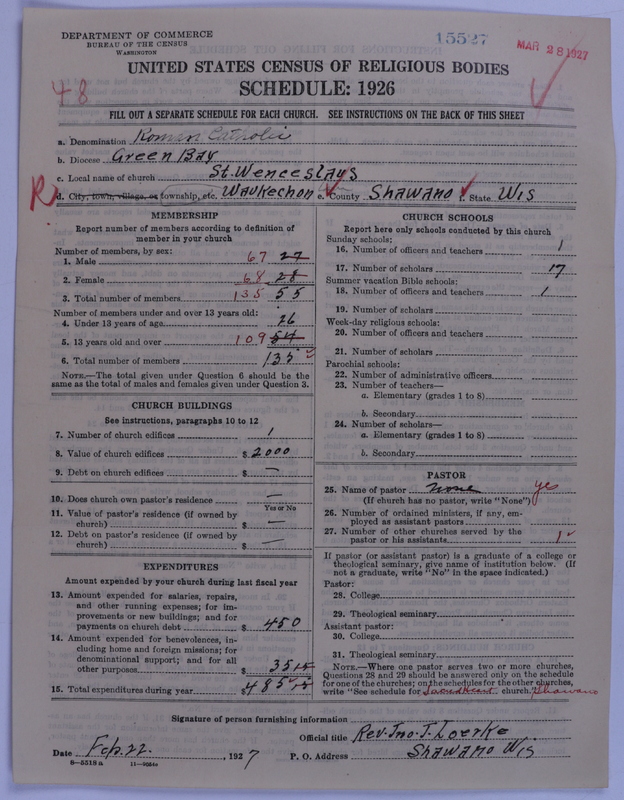 DEPARTMENT OF COMMERCE
BUREAU OF THE CENSUS
WASHINGTON
15527
MAR 28 1927
UNITED STATES CENSUS OF RELIGIOUS BODIES
SCHEDULE: 1926
48
FILL OUT A SEPARATE SCHEDULE FOR EACH CHURCH. SEE INSTRUCTIONS ON THE BACK OF THIS SHEET
a. Denomination Roman Catholic
b. Diocese Green Bay
c. Local name of church St. Wenceslays
R d. City, town, village, or township, etc. Waukechon e. County Shawano f. State Wis
MEMBERSHIP
Report number of members according to definition of
member in your church
Number of members, by sex:
1. Male 67 27
2. Female 68 28
3. Total number of members 135 55
Number of members under and over 13 years old:
4. Under 13 years of age 26
5. 13 years old and over 109 54
6. Total number of members 135
NOTE.—The total given under Question 6 should be the
same as the total of males and females given under Question 3.
CHURCH BUILDINGS
See instructions, paragraphs 10 to 12
7. Number of church edifices 1
8. Value of church edifices $ 2000
9. Debt on church edifices $ —
10. Does church own pastor's residence —
Yes or No
11. Value of pastor's residence (if owned by
church) $ —
12. Debt on pastor's residence (if owned by
church) $ —
EXPENDITURES
Amount expended by your church during last fiscal year
13. Amount expended for salaries, repairs,
and other running expenses; for im-
provements or new buildings; and for
payments on church debt $ 450
14. Amount expended for benevolences, in-
cluding home and foreign missions; for
denominational support; and for all
other purposes $ 35 15
15. Total expenditures during year $ 485 15
CHURCH SCHOOLS
Report here only schools conducted by this church
Sunday schools:
16. Number of officers and teachers 1
17. Number of scholars 17
Summer vacation Bible schools:
18. Number of officers and teachers 1
19. Number of scholars
Week-day religious schools:
20. Number of officers and teachers
21. Number of scholars
Parochial schools:
22. Number of administrative officers
23. Number of teachers—
a. Elementary (grades 1 to 8)
b. Secondary
24. Number of scholars—
a. Elementary (grades 1 to 8)
b. Secondary
PASTOR
25. Name of pastor none yes
(If church has no pastor, write "None")
26. Number of ordained ministers, if any, em-
ployed as assistant pastors
27. Number of other churches served by the
pastor or his assistants 1
If pastor (or assistant pastor) is a graduate of a college or
theological seminary, give name of institution below. (If
not a graduate, write "No" in the space indicated.)
Pastor:
28. College
29. Theological seminary
Assistant pastor:
30. College
31. Theological seminary
NOTE.—Where one pastor serves two or more churches,
Questions 28 and 29 should be answered only on the schedule
for one of the churches; on the schedules for the other churches,
write "See schedule for Sacred Heart church." Shawano
Signature of person furnishing information
Official title Rev. Jno. J. Loerke
Date Feb. 22. , 1927 P. O. Address Shawano Wis
8—5518 a 11—9864